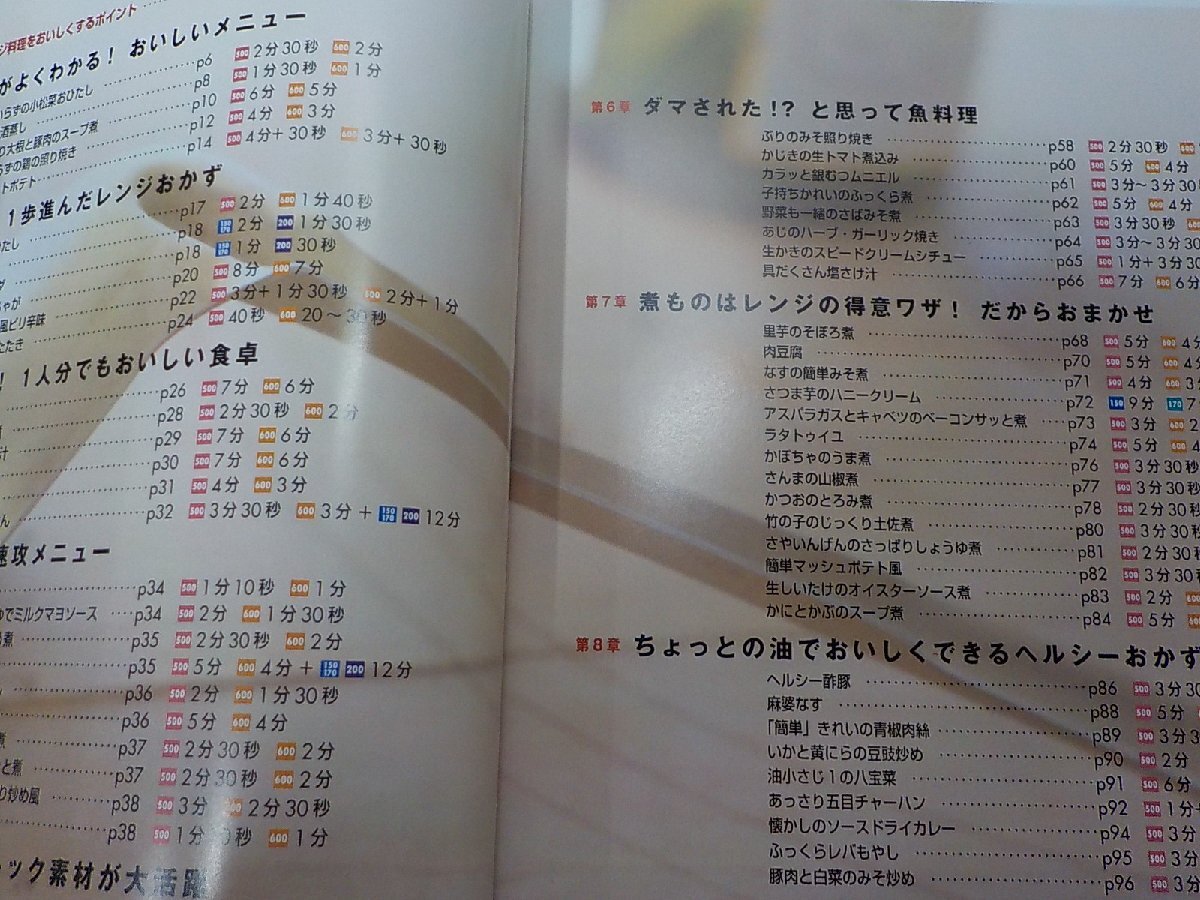 ジ料理をおいしくするポイント
がよくわかる! おいしいメニュー
らずの小松菜おひたし p6 500 2分30秒 600 2分
酒蒸し p8 500 1分30秒 600 1分
り大根と豚肉のスープ煮 p10 500 6分 600 5分
らずの鶏の照り焼き p12 500 4分 600 3分
トポテト p14 500 4分+30秒 600 3分+30秒
1歩進んだレンジおかず
たし p17 500 2分 600 1分40秒
p18 150 170 2分 200 1分30秒
p18 150 170 1分 200 30秒
ダ p20 500 8分 600 7分
ゃが p22 500 3分+1分30秒 600 2分+1分
風ピリ辛味 p24 500 40秒 600 20~30秒
たたき
! 1人分でもおいしい食卓
p26 500 7分 600 6分
p28 500 2分30秒 600 2分
汁 p29 500 7分 600 6分
p30 500 7分 600 6分
p31 500 4分 600 3分
ん p32 500 3分30秒 600 3分+ 150 170 200 12分
速攻メニュー
p34 500 1分10秒 600 1分
ゆでミルクマヨソース p34 500 2分 600 1分30秒
煮 p35 500 2分30秒 600 2分
p35 500 5分 600 4分+ 150 170 200 12分
p36 500 2分 600 1分30秒
p36 500 5分 600 4分
煮 p37 500 2分30秒 600 2分
と煮 p37 500 2分30秒 600 2分
り炒め風 p38 500 3分 600 2分30秒
p38 500 1分 秒 600 1分
ック素材が大活躍
第6章 ダマされた!? と思って魚料理
ぶりのみそ照り焼き p58 500 2分30秒
かじきの生トマト煮込み p60 500 5分 600 4分
カラッと銀むつムニエル p61 500 3分~3分30
子持ちかれいのふっくら煮 p62 500 5分 600 4分
野菜も一緒のさばみそ煮 p63 500 3分30秒
あじのハーブ・ガーリック焼き p64 500 3分~3分30
生かきのスピードクリームシチュー p65 500 1分+3分30
具だくさん塩さけ汁 p66 500 7分 600 6
第7章 煮ものはレンジの得意ワザ! だからおまかせ
里芋のそぼろ煮 p68 500 5分 600 4分
肉豆腐 p70 500 5分 600 4
なすの簡単みそ煮 p71 500 4分 600 3
さつま芋のハニークリーム p72 150 9分 170 7
アスパラガスとキャベツのベーコンサッと煮 p73 500 3分 600 2
ラタトゥイユ p74 500 5分 600 4
かぼちゃのうま煮 p76 500 3分30秒
さんまの山椒煮 p77 500 3分30秒
かつおのとろみ煮 p78 500 2分30秒
竹の子のじっくり土佐煮 p80 500 3分30秒
さやいんげんのさっぱりしょうゆ煮 p81 500 2分30秒
簡単マッシュポテト風 p82 500 3分30秒
生しいたけのオイスターソース煮 p83 500 2分 600
かにとかぶのスープ煮 p84 500 5分 600
第8章 ちょっとの油でおいしくできるヘルシーおかず
ヘルシー酢豚 p86 500 3分30
麻婆なす p88 500 5分
「簡単」きれいの青椒肉絲 p89 500 3分3
いかと黄にらの豆豉炒め p90 500 2分
油小さじ1の八宝菜 p91 500 6分
あっさり五目チャーハン p92 500 1分+
懐かしのソースドライカレー p94 500 3分
ふっくらレバもやし p95 500 3分
豚肉と白菜のみそ炒め p96 500 3分